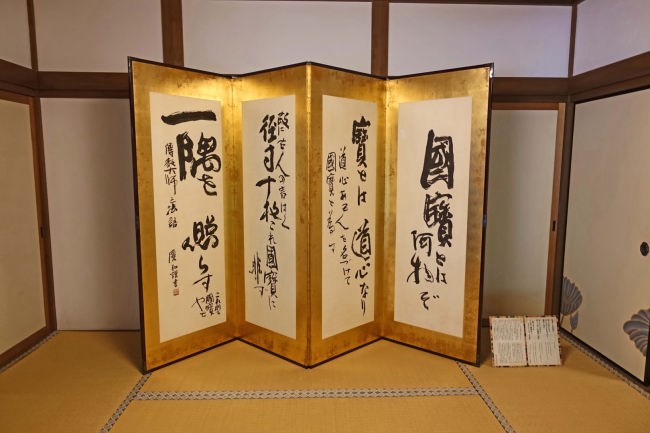 國寶とは
何物ぞ
寶とは道心なり
道心ある人を名づけて
國寶と為す
故に古人の言はく
径寸十枚これ國寶に
非ず
一隅を照らす
これ則
國寶
傳教大師法語